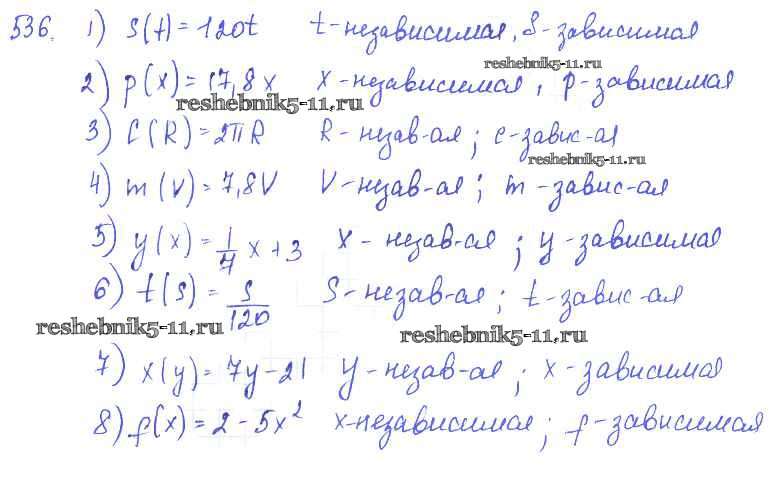 536. 1) S(t) = 120t t-независимая, S-зависимая
reshebnik5-11.ru
2) p(x) = 17,8x x-независимая, p-зависимая
reshebnik5-11.ru
3) C(R) = 2πR R-незав-ая; c-завис-ая
reshebnik5-11.ru
4) m(V) = 7,8V V-незав-ая; m-завис-ая
5) y(x) = 1/7 x + 3 x - незав-ая; y-зависимая
6) t(s) = S/120 S-незав-ая; t-завис-ая
reshebnik5-11.ru reshebnik5-11.ru
7) x(y) = 7y - 21 y-незав-ая; x-зависимая
8) f(x) = 2 - 5x² x-независимая; f-зависимая